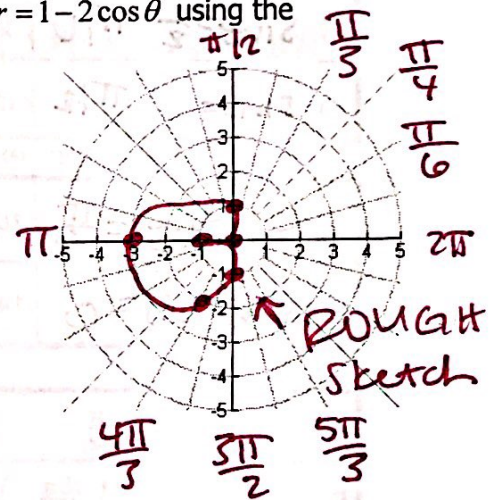 r = 1 − 2 cos θ using the
π/2
π/3
π/4
π/6
5
4
3
2
1
π -5 -4 -3 -2 -1 1 2 3 4 5 2π
-1
-2
-3
-4
-5
ROUGH
Sketch
4π/3 3π/2 5π/3